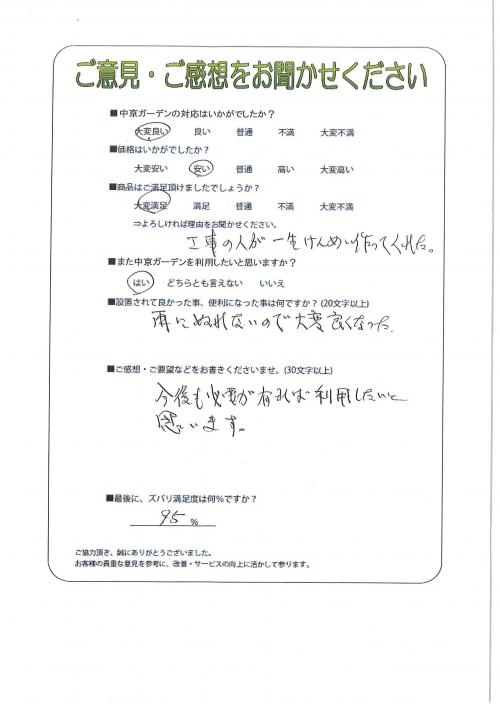 ご意見・ご感想をお聞かせください
■中京ガーデンの対応はいかがでしたか？
大変良い 良い 普通 不満 大変不満
■価格はいかがでしたか？
大変安い 安い 普通 高い 大変高い
■商品はご満足頂けましたでしょうか？
大変満足 満足 普通 不満 大変不満
⇒よろしければ理由をお聞かせください。
工事の人が一生けんめい作ってくれた。
■また中京ガーデンを利用したいと思いますか？
はい どちらとも言えない いいえ
■設置されて良かった事、便利になった事は何ですか？(20文字以上)
雨にぬれないので大変良くなった.
■ご感想・ご要望などをお書きくださいませ。(30文字以上)
今後も必要が有れば利用したいと
思います。
■最後に、ズバリ満足度は何％ですか？
95 %
ご協力頂き、誠にありがとうございました。
お客様の貴重な意見を参考に、改善・サービスの向上に活かして参ります。